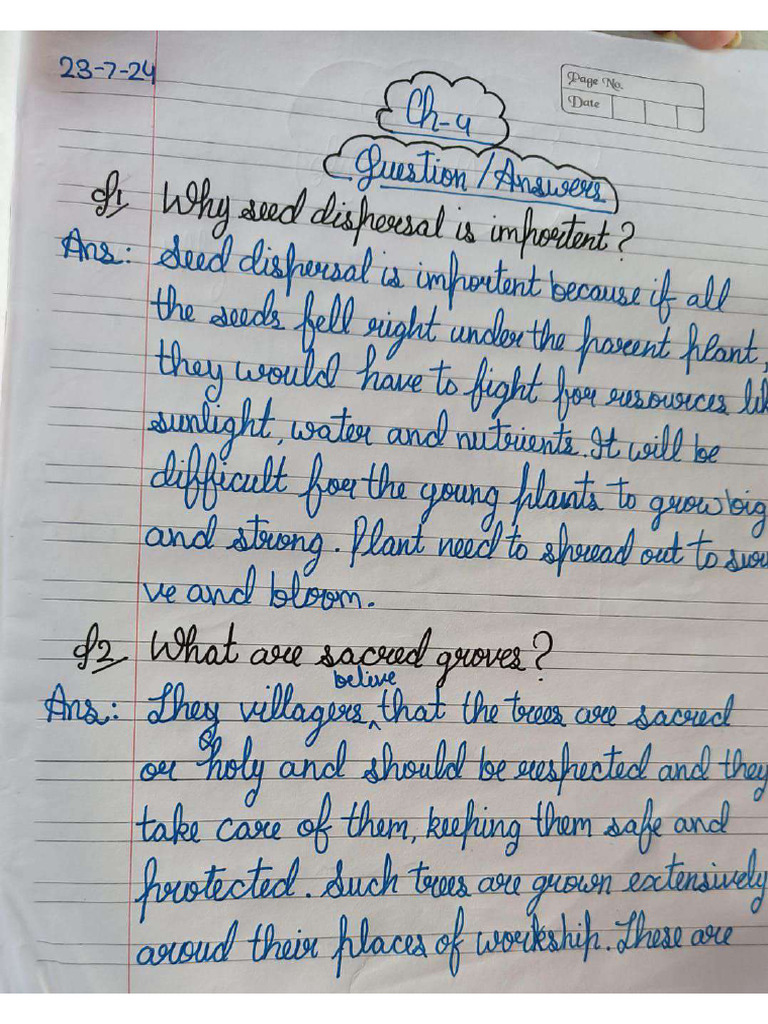 23-7-24
Page No.
Date
Ch-4
Question/Answers
Q1 Why seed dispersal is importent?
Ans: Seed dispersal is importent because if all
the seeds fell right under the parent plant,
they would have to fight for resources li
sunlight, water and nutrients. It will be
difficult for the young plants to grow big
and strong. Plant need to spread out to
ve and bloom.
Q2 What are sacred groves?
believe
Ans: They villagers, that the trees are sacred
or holy and should be respected and they
take care of them, keeping them safe and
protected. Such trees are grown extensively
aroud their places of workship. These are